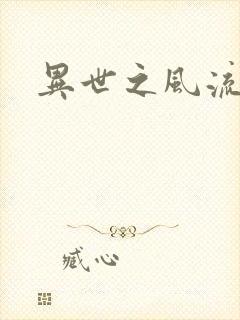 異世之風流
臧心